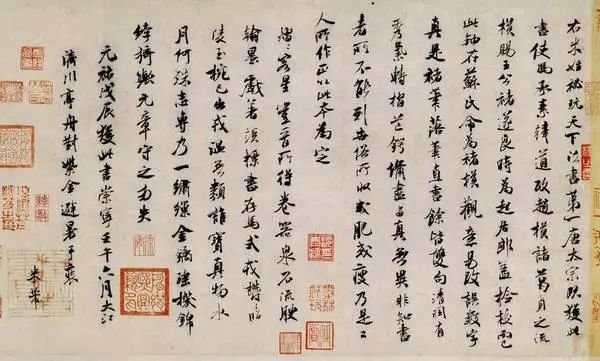 右米姓秘玩天下法書第一唐太宗既獲此
書使馮承素韓道政趙模諸葛貞之流
模賜王公褚遂良時為起居郎蓋檢校而已
此軸在蘇氏命為褚模觀意易改誤數字
真是褚筆落筆直書餘皆雙勾清潤有
秀氣轉摺芒鋩備盡与真無異非知書
者所不能到世俗所收或肥或瘦乃是工
人所作正以此本為定
熠熠客星豈晉所得卷器泉石流腴
翰墨戲著談標書存馬式欝欝昭
陵玉椀已出戎温無類誰寶真物水
月何殊志專乃一繡繅金鐍瑶機錦
綷猗歟元章守之勿失
元祐戊辰獲此書崇寧壬午六月大江
濟川亭舟對紫金避暑手裝
米芾